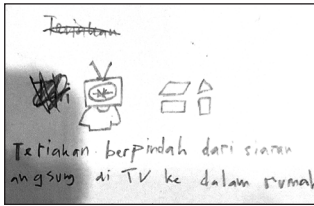 Teriakan
Teriakan berpindah dari siaran
angsung di TV ke dalam rumah